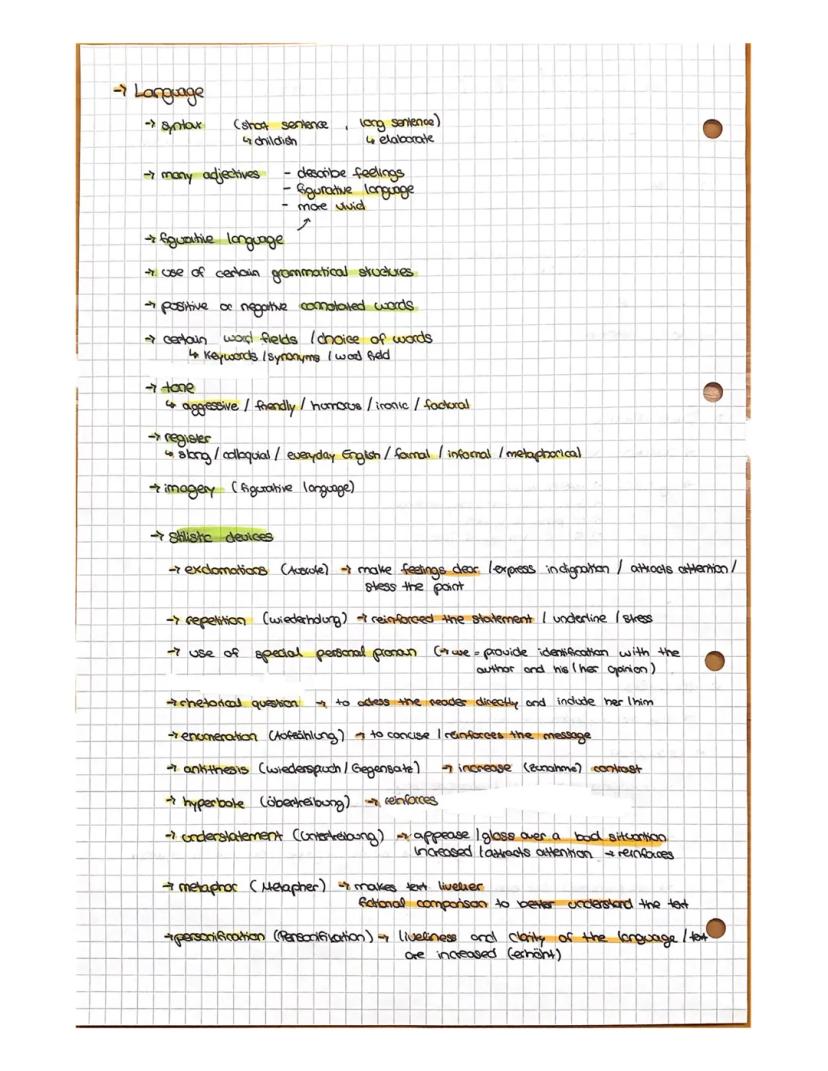 → Language
→ syntax (short sentence , long sentence)
↳ childish ↳ elaborate
→ many adjectives - describe feelings
- figurative language
- more vivid
→ figurative language
→ use of certain grammatical structures
→ positive or negative connotated words
→ certain word fields / choice of words
↳ Keywords / synonyms / word field
→ tone
↳ aggressive / friendly / humorous / ironic / factural
→ register
↳ slang / colloquial / everyday English / formal / informal / metaphorical
→ imagery (figurative language)
→ Stilistic devices
→ exclamations (Ausrufe) → make feelings clear / express indignation / attracts attention /
stess the point
→ repetition (Wiederholung) → reinforced the statement / underline / stress
→ use of special personal pronoun (→ we = provide identification with the
author and his / her opinion)
→ rhetorical question → to adess the reader directly and include her / him
→ enumeration (Aufzählung) → to concise / reinforces the message
→ antithesis (Wiederspruch / Gegensatz) → increase (Zunahme) contrast
→ hyperbole (Übertreibung) → reinforces
→ understatement (Untertreibung) → appease / gloss over a bad situation
increased / attracts attention → reinforces
→ metaphor (Metapher) → makes text livelier
fictional comparison to better understand the text
→ personification (Personifikation) → liveliness and clarity of the language / text
are increased (erhöht)